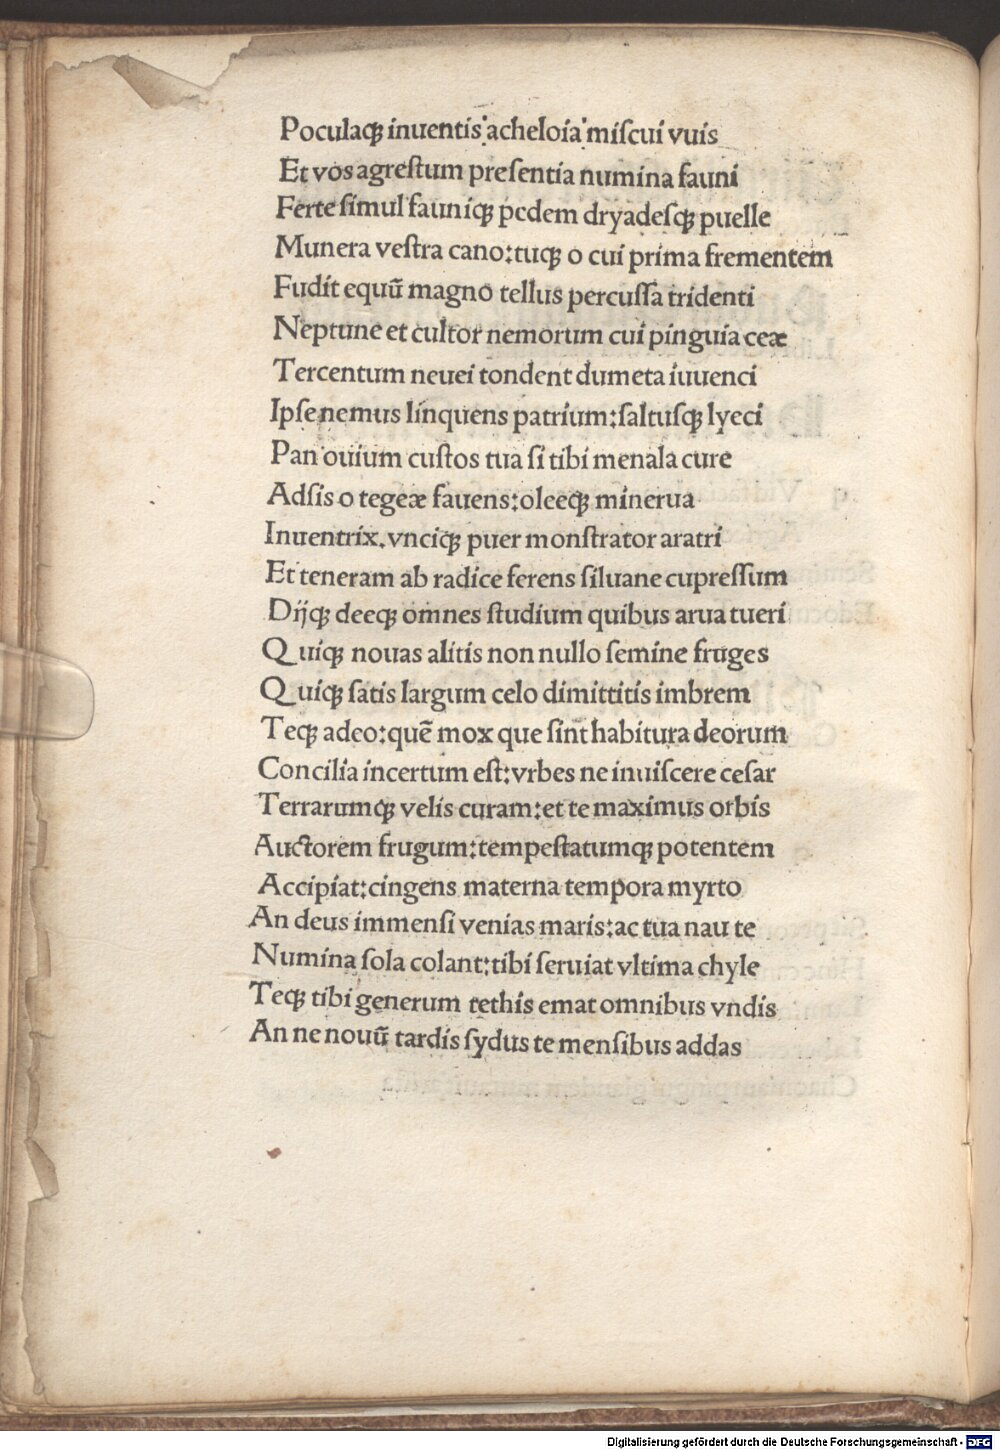 Poculaqꝫ inuentis acheloia miſcui vuis
Et vos agreſtum preſentia numina fauni
Ferte ſimul fauniqꝫ pedem dryadeſqꝫ puelle
Munera veſtra cano:tuqꝫ o cui prima frementem
Fudit equū magno tellus percuſſa tridenti
Neptune et cultor nemorum cui pinguia ceæ
Tercentum neuei tondent dumeta iuuenci
Ipſe nemus linquens patrium:ſaltuſqꝫ lyeci
Pan ouium cuſtos tua ſi tibi menala cure
Adſis o tegeæ fauens:oleeqꝫ minerua
Inuentrix.vnciqꝫ puer monſtrator aratri
Et teneram ab radice ferens ſiluane cupreſſum
Dijqꝫ deeqꝫ omnes ſtudium quibus arua tueri
Quiqꝫ nouas alitis non nullo ſemine fruges
Quiqꝫ ſatis largum celo dimittitis imbrem
Teqꝫ adeo:quē mox que ſint habitura deorum
Concilia incertum eſt:vrbes ne inuiſcere ceſar
Terrarumqꝫ velis curam:et te maximus orbis
Auctorem frugum:tempeſtatumqꝫ potentem
Accipiat:cingens materna tempora myrto
An deus immenſi venias maris:ac tua nau te
Numina ſola colant:tibi ſeruiat vltima chyle
Teqꝫ tibi generum tethis emat omnibus vndis
An ne nouū tardis ſydus te menſibus addas
Digitalisierung gefördert durch die Deutsche Forschungsgemeinschaft - DFG